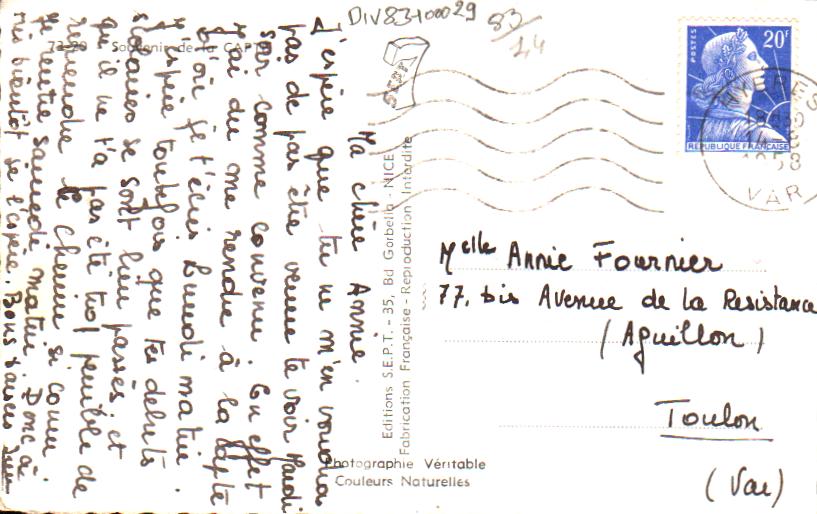 DIV83100029
83/14
73-20 Souvenir de la CAPTE
Ma chère Annie.
J'espère que tu ne m'en voudras
pas de pas être venue te voir Mardi
soir comme convenu. En effet
j'ai du me rendre à la Capte
d'où je t'écris Lundi matin.
J'espère toutefois que tes débuts
scolaires se sont bien passés et
qu'il ne t'a pas été trop pénible de
reprendre le chemin si connu
Je rentre samedi matin. Donc à
très bientôt je l'espère. Bons baisers
Editions S.E.P.T. - 35, Bd Gorbella - NICE
Fabrication Française - Reproduction Interdite
Photographie Véritable
Couleurs Naturelles
SEPT
POSTES
20F
REPUBLIQUE FRANÇAISE
HYERES
1958
VAR
Melle Annie Fournier
77. bis Avenue de la Resistance
(Aguillon)
Toulon
(Var)